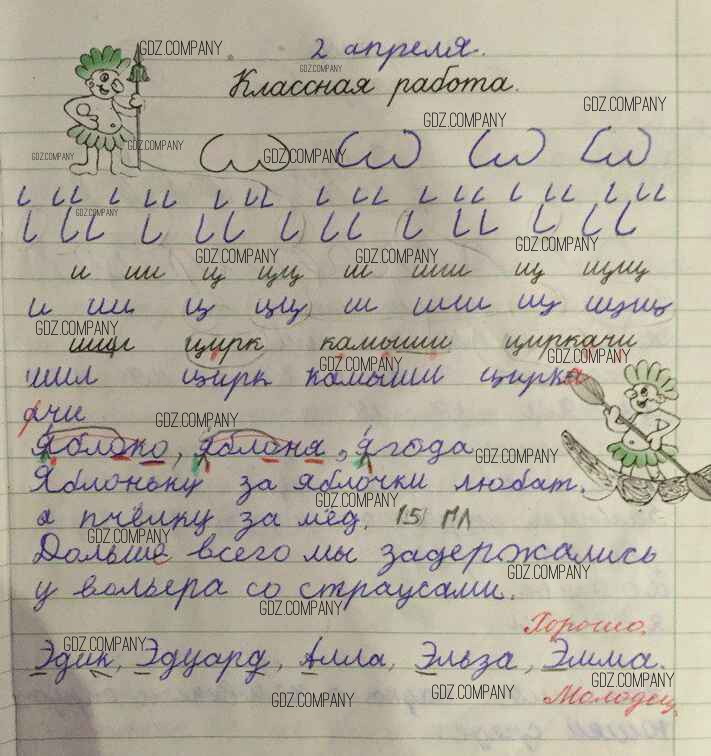 2 апреля.
Классная работа.
и ии ц цц ш шш щ щщ
и ии ц цц ш шш щ щщ
шил цирк камыши циркачи
шил цирк камыши цирка
ачи
Яблоко, яблоня, ягода
Яблоньку за яблочки любят,
а пчёлку за мёд. 15 ГЛ
Дольше всего мы задержались
у вольера со страусами.
Хорошо.
Эдик, Эдуард, Алла, Эльза, Эмма.
Молодец
GDZ.COMPANY